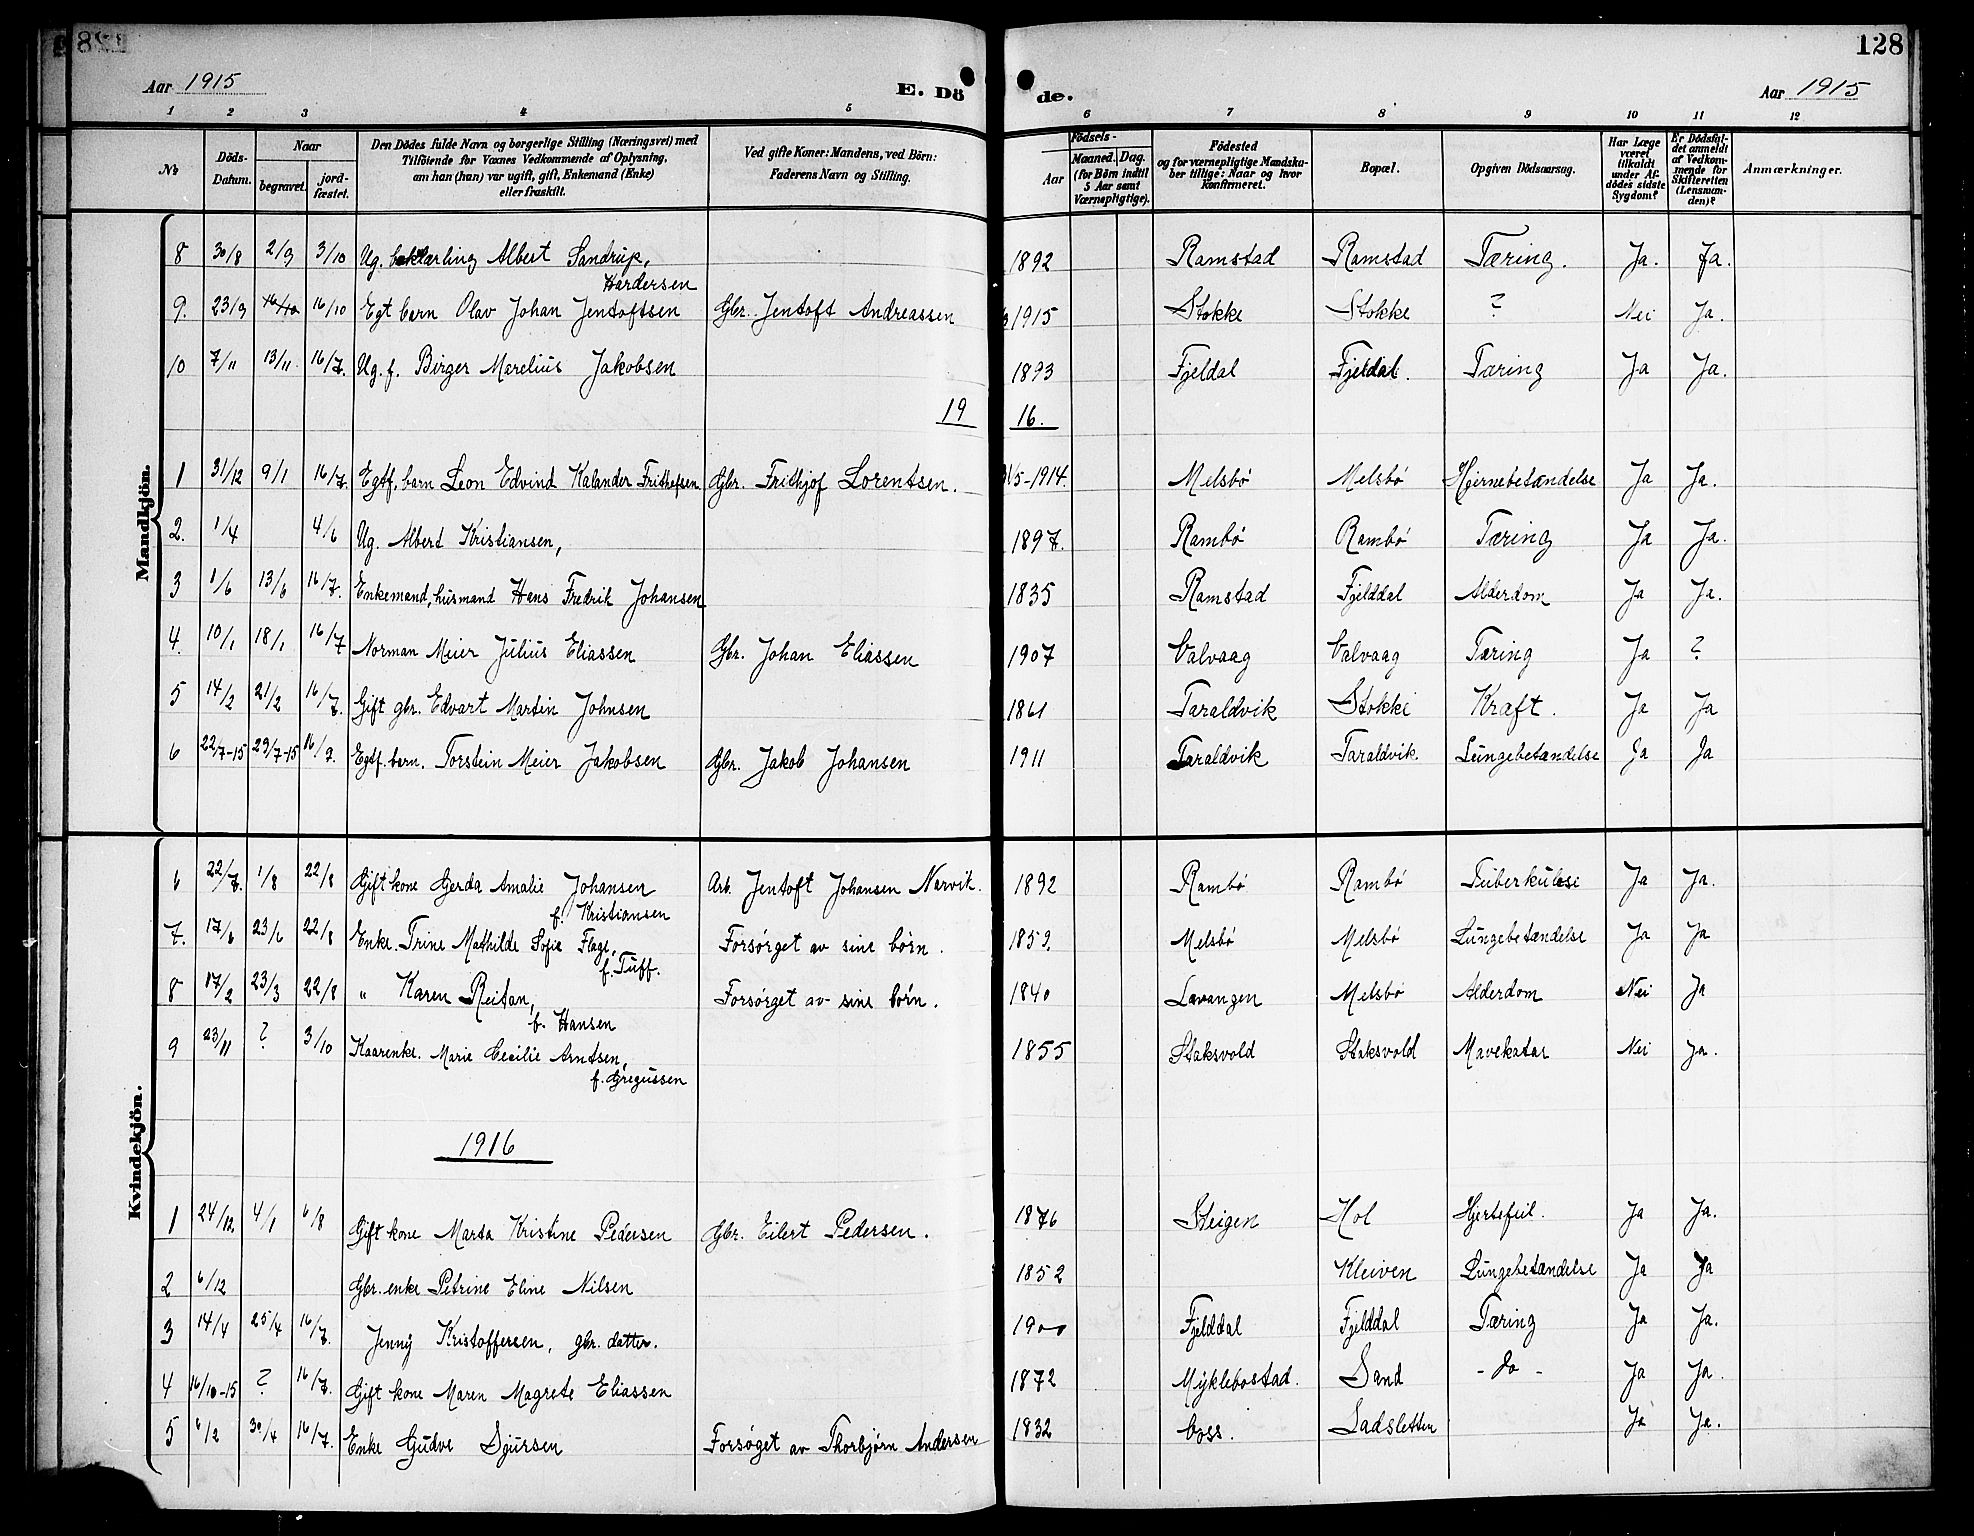 128
Aar 1915
E. Dö
de.
Aar 1915
1 2 3 4 5 6 7 8 9 10 11 12
No
Döds-Datum.
Naar
begravet.
jord-fæstet.
Den Dödes fulde Navn og borgerlige Stilling (Næringsvei) med
Tilföiende for Voxnes Vedkommende af Oplysning,
om han (hun) var ugift, gift, Enkemand (Enke)
eller fraskilt.
Ved gifte Koner: Mandens, ved Börn:
Faderens Navn og Stilling.
Födsels-
Aar
Maaned. Dag.
(for Börn indtil
5 Aar samt
Værnepligtige).
Födested
og for værnepligtige Mandska-
ber tillige: Naar og hvor
konfirmeret.
Bopæl.
Opgiven Dödsaarsag.
Har Læge
været
tilkaldt
under Af-
dödes sidste
Sygdom?
Er Dödsfal-
det anmeldt
af Vedkom-
mende for
Skifteretten
(Lensman-
den)?
Anmærkninger.
Mandkjön.
8 30/8 2/9 3/10 Ug. Albert Sandrup, 1892 Ramstad Ramstad Tæring. Ja. Ja.
Hardersen
9. 23/9 16/10 16/10 Egt barn Olav Johan Jentoftsen Gbr. Jentoft Andreassen 1915 Stokke Stokke ? Nei Ja.
10 7/11 13/11 16/7. Ug. f. Birger Marelius Jakobsen 1893 Fjeldal Fjeldal. Tæring Ja Ja.
19 16.
1 31/12 9/1 16/7. Egtf. barn Leon Edvind Kalander Frithefsen Gbr. Frithjof Lorentsen. 31/5-1914. Melsbø Melsbø Hjernebetændelse Ja Ja.
2. 1/4 4/6 Ug. Albert Kristiansen, 1897. Rambø Rambø Tæring Ja Ja.
3 1/6 13/6 16/7. Enkemand, husmand Hans Fredrik Johansen 1835 Ramstad Fjelddal Alderdom Ja Ja.
4. 10/1 18/1 16/7 Norman Meier Julius Eliassen Gbr. Johan Eliassen 1907 Valvaag Valvaag Tæring Ja ?
5 14/2 21/2 16/7. Gift gbr. Edvart Martin Johnsen 1861 Taraldvik Stokke Kræft. Ja Ja
6 22/7-15 29/7-15 16/7. Egtf. barn. Torstein Meier Jakobsen Gbr. Jakob Johansen 1911 Taraldvik Taraldvik. Lungebetændelse Ja Ja
Kvindekjön.
6 22/7. 1/8 22/8 Gift kone Gjerda Amalie Johansen Arb. Jentoft Johansen Narvik. 1892 Rambø Rambø Tuberkulose Ja Ja.
f. Kristiansen
7. 17/6 23/6 22/8 Enke. Trine Mathilde Sofie Flage, Forsørget av sine børn. 1859. Melsbø Melsbø Lungebetændelse Ja Ja
f. Tuff.
8 17/2 23/3 22/8 " Karen Reitan, Forsørget av sine børn. 1840 Lavangen Melsbø Alderdom Nei Ja
f. Hansen
9 23/11 ? 3/10 Kaarenke. Marie Cecilie Arntsen, 1855 Staksvold Staksvold Mavekatar Nei Ja.
f. Gregussen
1916
1 24/12. 4/1 6/8 Gift kone Marta Kristine Pedersen Gbr. Eilert Pedersen. 1876 Steigen Hol Hjertefeil. Ja Ja.
2 6/12 Gbr. enke Petrine Eline Nilsen 1852 Kleiven Lungebetændelse Ja Ja
3 14/4 25/4 16/7. Jenny Kristoffersen, gbr. datter. 1900 Fjelddal Fjelddal Tæring Ja Ja.
4 16/10-15 ? 16/7. Gift kone Maren Magrete Eliassen 1872 Myklebostad. Sand - do - Ja Ja.
5 6/2 30/4 16/7. Enke Gudve Sjursen Forsøget av Thorbjørn Andersen 1832 Voss. Ladsletten Ja Ja.